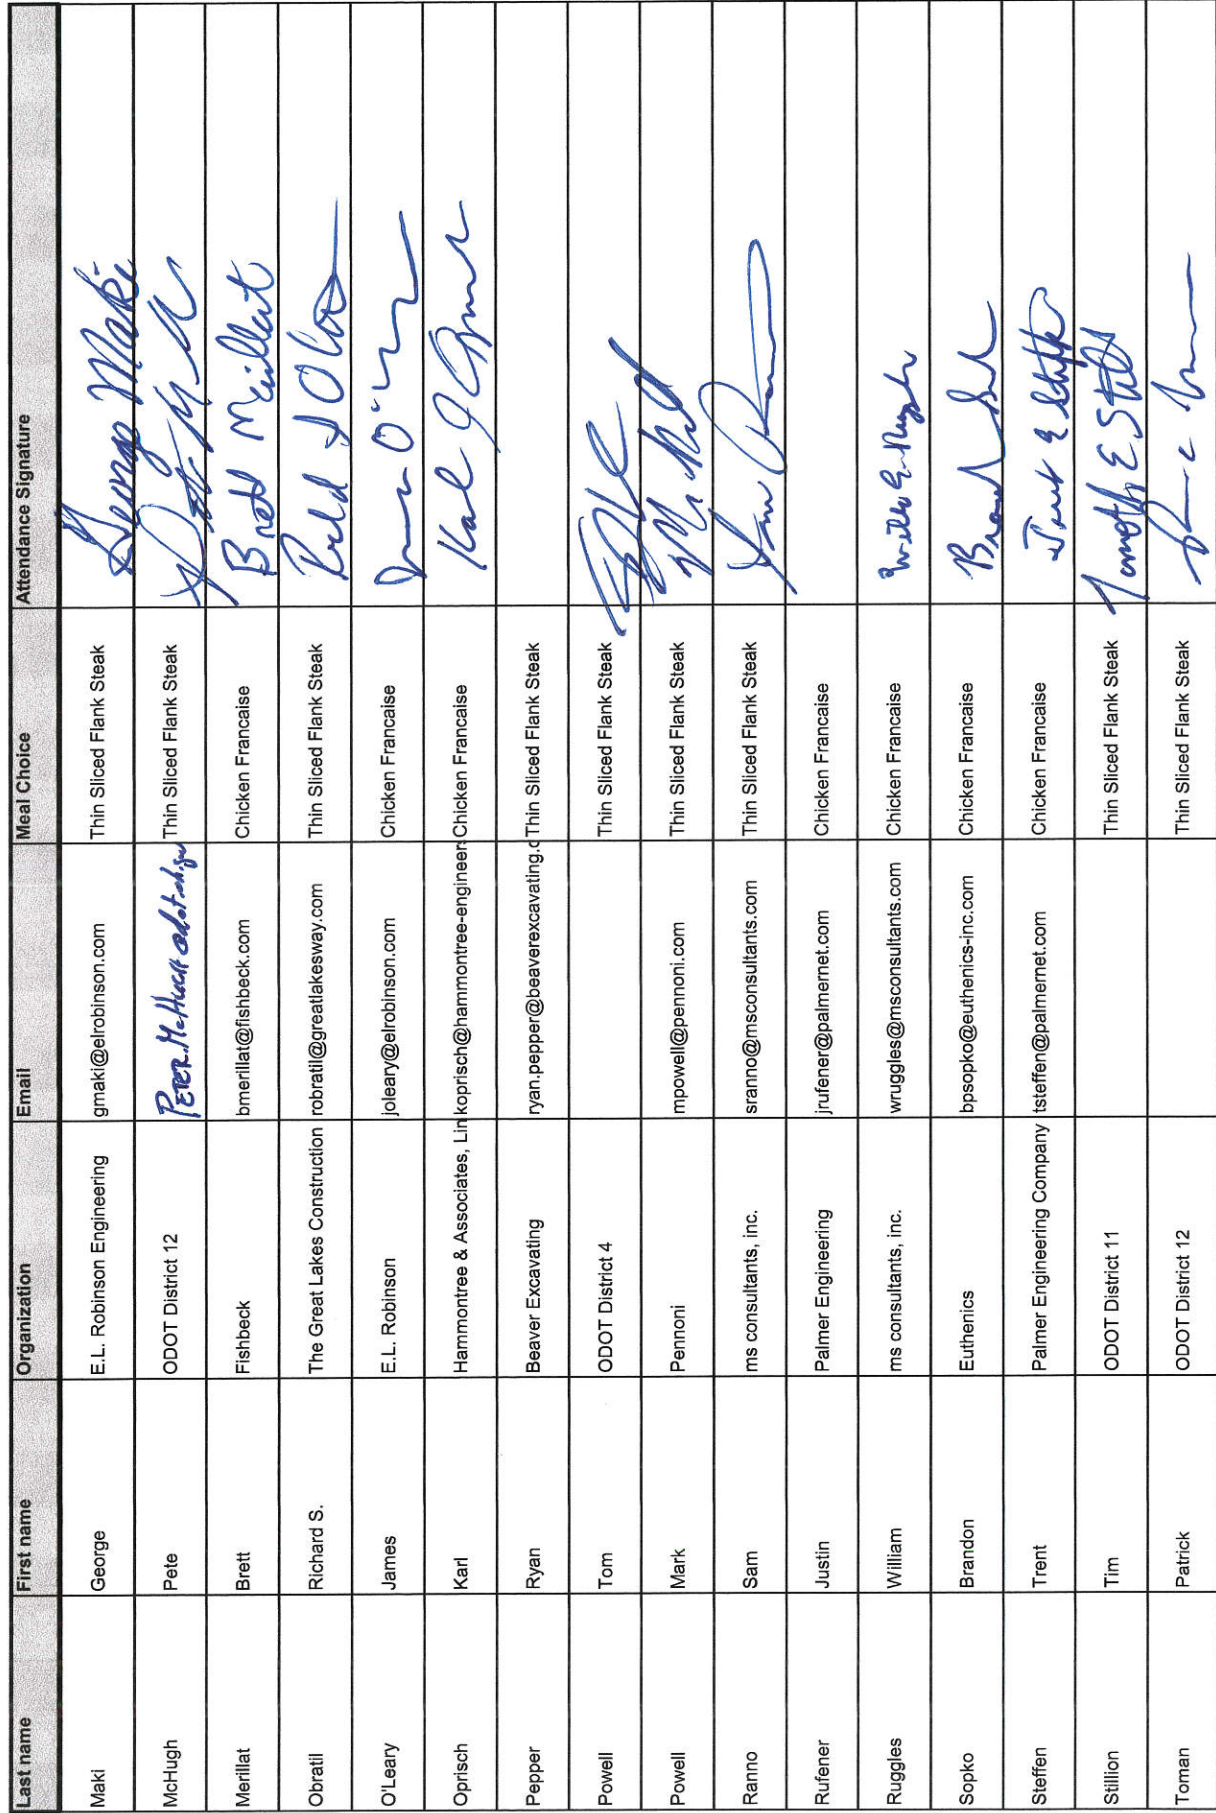 Last name First name Organization Email Meal Choice Attendance Signature
Maki George E.L. Robinson Engineering gmaki@elrobinson.com Thin Sliced Flank Steak George Maki
McHugh Pete ODOT District 12 Thin Sliced Flank Steak
Merillat Brett Fishbeck bmerillat@fishbeck.com Chicken Francaise Brett Merillat
Obratil Richard S. The Great Lakes Construction robratil@greatlakesway.com Thin Sliced Flank Steak
O'Leary James E.L. Robinson joleary@elrobinson.com Chicken Francaise
Oprisch Karl Hammontree & Associates, Lin koprisch@hammontree-engineers Chicken Francaise Karl J Oprisch
Pepper Ryan Beaver Excavating ryan.pepper@beaverexcavating.c Thin Sliced Flank Steak
Powell Tom ODOT District 4 Thin Sliced Flank Steak
Powell Mark Pennoni mpowell@pennoni.com Thin Sliced Flank Steak
Ranno Sam ms consultants, inc. sranno@msconsultants.com Thin Sliced Flank Steak
Rufener Justin Palmer Engineering jrufener@palmernet.com Chicken Francaise
Ruggles William ms consultants, inc. wruggles@msconsultants.com Chicken Francaise
Sopko Brandon Euthenics bpsopko@euthenics-inc.com Chicken Francaise
Steffen Trent Palmer Engineering Company tsteffen@palmernet.com Chicken Francaise Trent E Steffen
Stillion Tim ODOT District 11 Thin Sliced Flank Steak Timothy E Still
Toman Patrick ODOT District 12 Thin Sliced Flank Steak